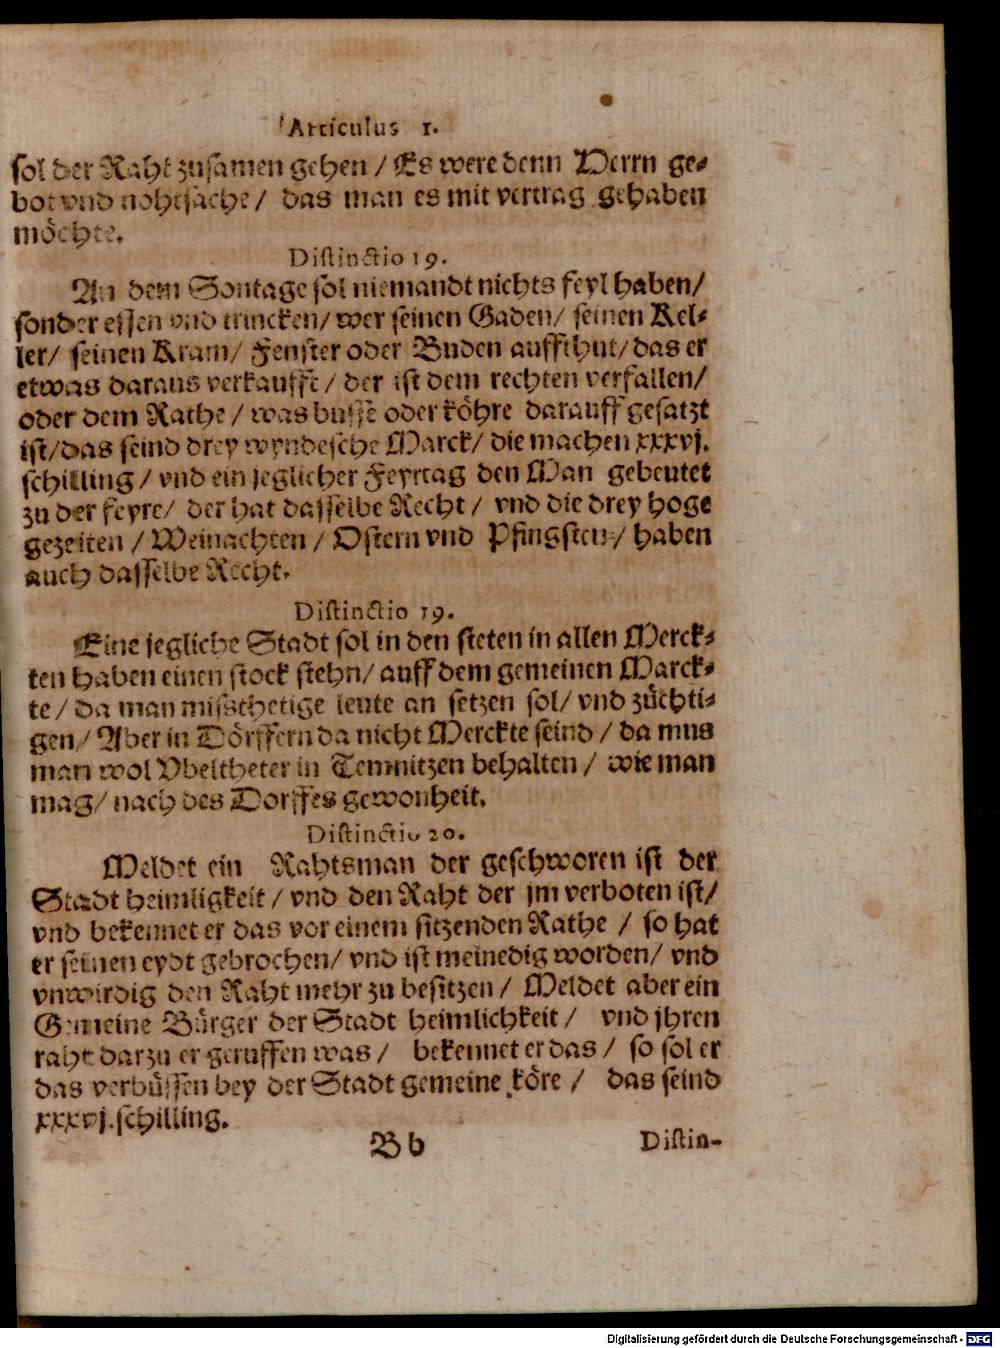 Articulus 1.
sol der Raht zusamen gehen / Es were denn Herrn ge-
bot vnd nohtsache / das man es mit vertrag gehaben
möchte.
Distinctio 19.
An dem Sontage sol niemandt nichts feyl haben/
sonder essen vnd trincken/ wer seinen Gaden/ seinen Kel-
ler/ seinen Kram/ Fenster oder Buden auffthut/ das er
etwas daraus verkaufft / der ist dem rechten verfallen/
oder dem Rathe / was busse oder köhre darauff gesatzt
ist/ das seind drey wyndesche Marck/ die machen xxxvj.
schilling / vnd ein jeglicher Feyrtag den Man gebeutet
zu der feyre/ der hat dasselbe Recht / vnd die drey hoge
gezeiten / Weinachten / Ostern vnd Pfingsten / haben
auch dasselbe Recht.
Distinctio 19.
Eine jegliche Stadt sol in den steten in allen Merck-
ten haben einen stock stehn/ auff dem gemeinen Marck-
te / da man missthetige leute an setzen sol/ vnd züchti-
gen/ Aber in Dörffern da nicht Merckte seind / da mus
man wol Vbeltheter in Temnitzen behalten / wie man
mag/ nach des Dorffes gewonheit.
Distinctio 20.
Meldet ein Rahtsman der geschworen ist der
Stadt heimligkeit / vnd den Raht der jm verboten ist/
vnd bekennet er das vor einem sitzenden Rathe / so hat
er seinen eydt gebrochen/ vnd ist meinedig worden/ vnd
vnwirdig den Raht mehr zu besitzen / Meldet aber ein
Gemeine Bürger der Stadt heimlichkeit / vnd jhren
raht darzu er geruffen was / bekennet er das / so sol er
das verbüssen bey der Stadt gemeine köre / das seind
xxxvj. schilling.
B b Distin-
Digitalisierung gefördert durch die Deutsche Forschungsgemeinschaft - DFG